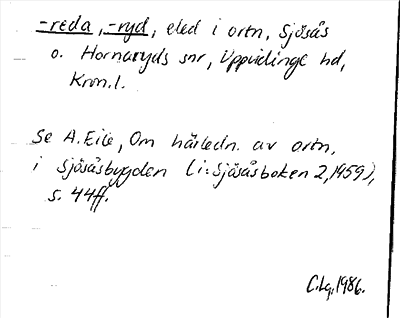 -reda, -ryd, eled i ortn, Sjösås
o. Hornaryds snr, Uppvidinge hd,
Kron.l.
Se A. Eile, Om härledn. av ortn,
i Sjösåsbygden (i: Sjösåsboken 2, 1959),
s. 44ff.
C.Lg. 1986.